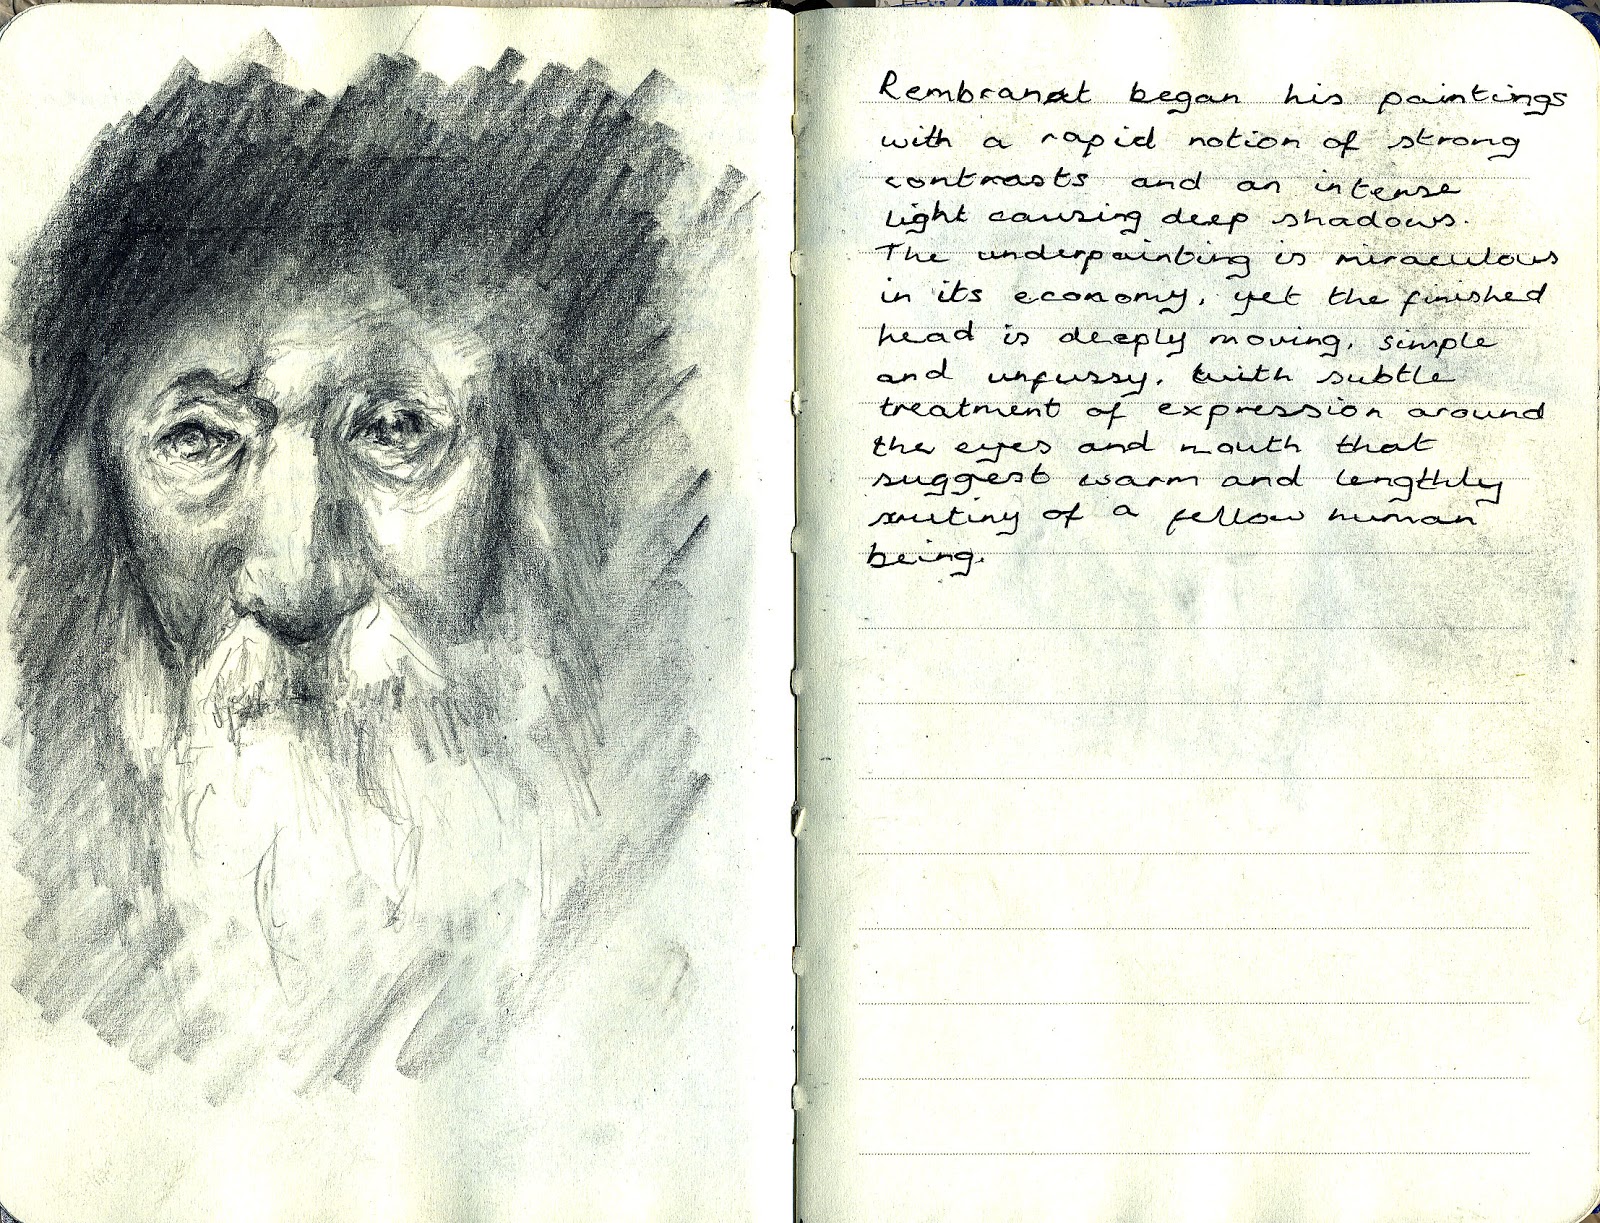 Rembrandt began his paintings
with a rapid notion of strong
contrasts and an intense
light causing deep shadows.
The underpainting is miraculous
in its economy, yet the finished
head is deeply moving, simple
and unfussy, with subtle
treatment of expression around
the eyes and mouth that
suggest warm and lengthly
scrutiny of a fellow human
being.